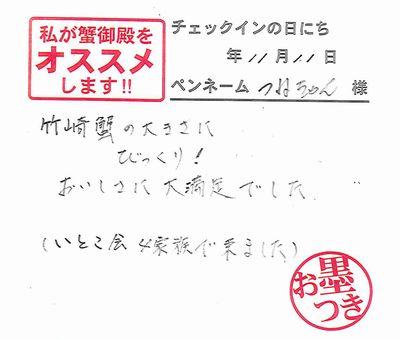 私が蟹御殿を
オススメ
します!!
チェックインの日にち
年 11月 11日
ペンネーム つねちゃん 様
竹崎蟹の大きさに
びっくり!
おいしさに大満足でした
(いとこ会 4家族で来ました)
お墨つき